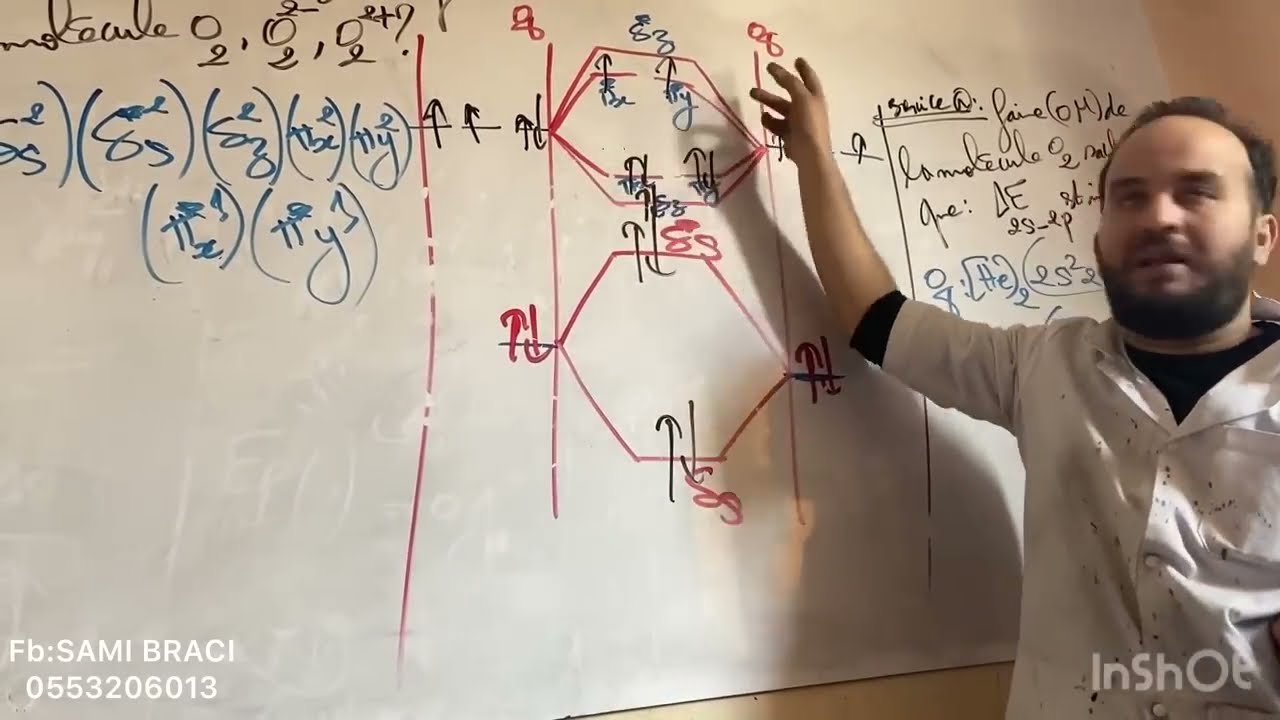 molécule O₂, O₂²⁻, O₂²⁺?
(σs²)(σ*s²)(σz²)(πx²)(πy²)
(π*x¹)(π*y¹)
σ*z
π*x π*y
πx πy
σz
σ*s
σs
Faire (OM) de
la molécule O₂
que: ΔE
2s-2p
₈O: [He]₂ (2s²
Fb:SAMI BRACI
0553206013
InShOt